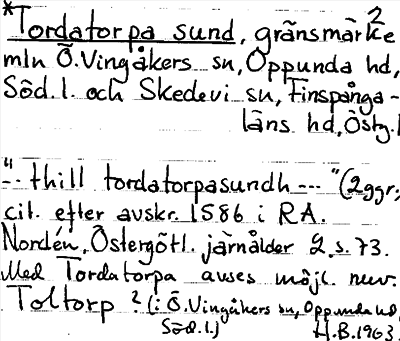 *Tordatorpa sund, gränsmärke 2
mln Ö.Vingåkers sn, Oppunda hd,
Söd.l. och Skedevi sn, Finspånga-
läns hd, Östg.l
"--- thill tordatorpasundh ---" (2ggr;
cit. efter avskr. 1586 i RA.
Nordén, Östergötl. järnålder 2, s. 73.
Med Tordatorpa avses möjl. nuv.
Toltorp ? (i Ö.Vingåkers sn, Oppunda hd,
Söd.l.)
H.B.1963.